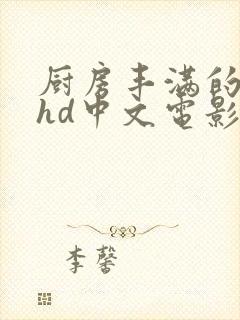 厨房丰满的
hd中文电影
李馨